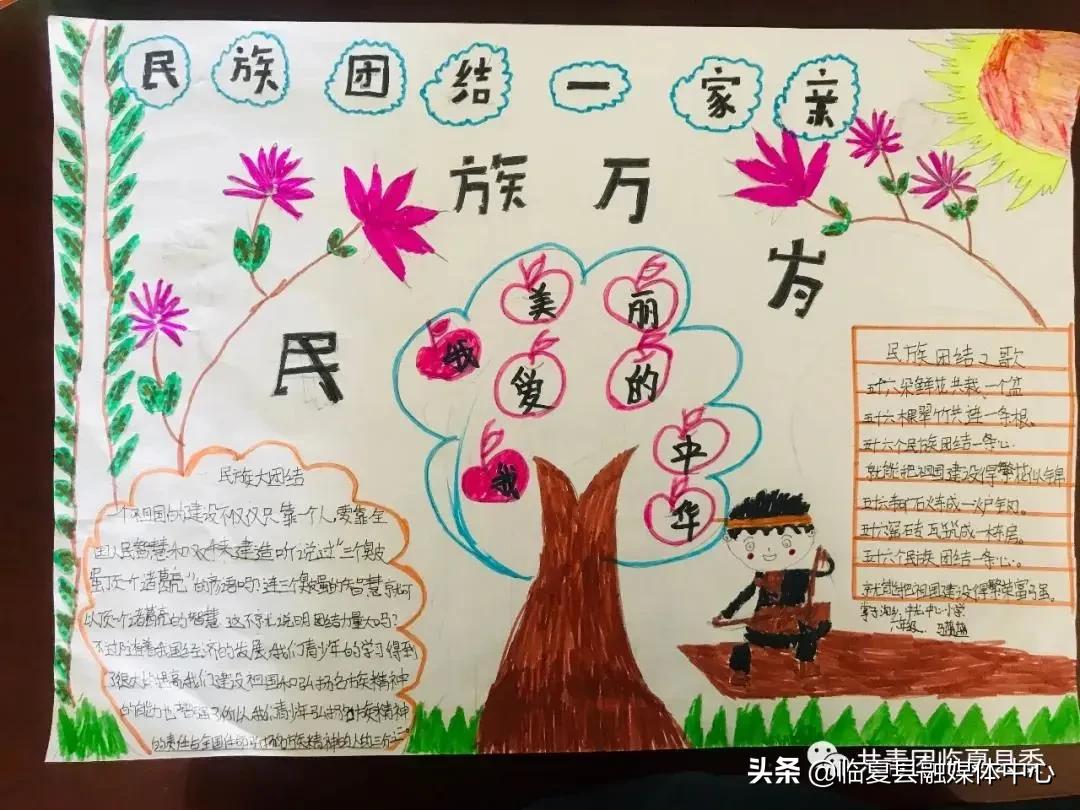 民族团结一家亲
民族万岁
我爱美丽的
我
中华
民族大团结
一个祖国的建设不仅仅只靠一个人,要靠全
国人民智慧和双手来建造听说过"三个臭皮
蛋顶个诸葛亮"的俗语吗?连三个臭蛋的智慧就可
以顶个诸葛亮的智慧 这不就说明团结力量大吗?
不过随着祖国经济的发展,我们青少年的学习得到
了很大的提高我们建设祖国和弘扬名族精神
的能力也增强了所以我们青少年弘扬名族精神
的责任占全国任
民族团结之歌
五十六朵鲜花共栽一个盆
五十六棵翠竹共连一条根、
五十六个民族团结一条心.
就能把祖国建设得繁花似锦
炼成一炉钢。
砖瓦筑成一栋层。
五十六个民族团结一条心.
就能把祖国建设得繁荣富强。
中心小学
六年级
共青团临夏县委
头条 @临夏县融媒体中心